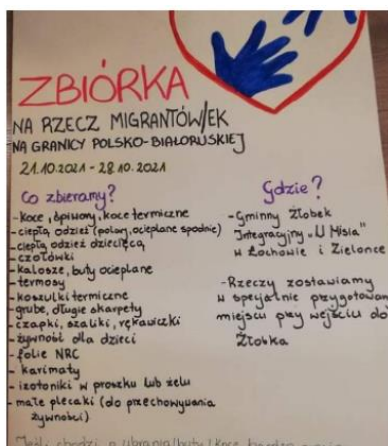 ZBIÓRKA
NA RZECZ MIGRANTÓW/EK
NA GRANICY POLSKO-BIAŁORUSKIEJ
21.10.2021 - 28.10.2021
Co zbieramy?
- koce, śpiwory, koce termiczne
- ciepła odzież (polary, ocieplane spodnie)
- ciepłą odzież dziecięcą
- czołówki
- kalosze, buty ocieplane
- termosy
- koszulki termiczne
- grube, długie skarpety
- czapki, szaliki, rękawiczki
- żywność dla dzieci
- folie NRC
- karimaty
- izotoniki w proszku lub żelu
- małe plecaki (do przechowywania
żywności)
Gdzie?
- Gminny Żłobek
Integracyjny "U Misia"
w Łochowie i Zielonce
- Rzeczy zostawiamy
w specjalnie przygotowan
miejscu przy wejściu do
Żłobka
chodzi o ubrania/buty/koce